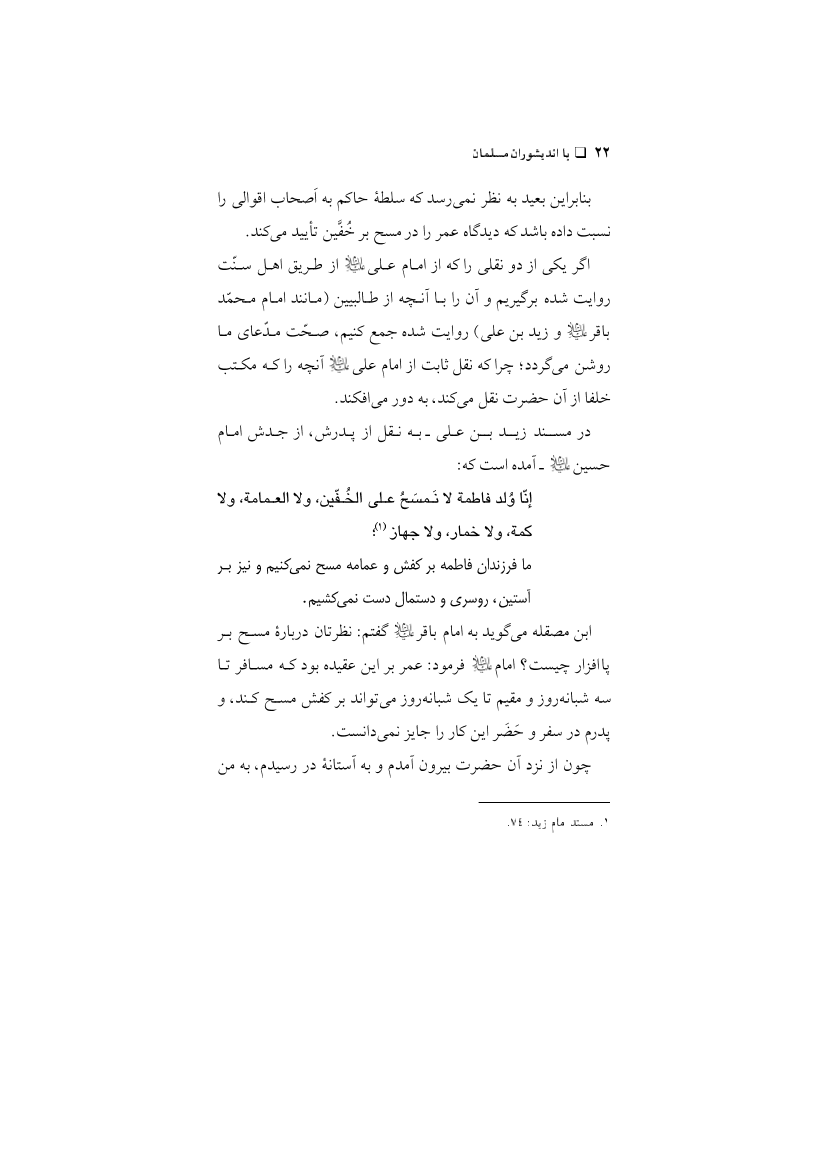 ۲۲ ❑ با اندیشوران مسلمان
بنابراین بعید به نظر نمی‌رسد که سلطهٔ حاکم به اَصحاب اقوالی را
نسبت داده باشد که دیدگاه عمر را در مسح بر خُفَّین تأیید می‌کند.
اگر یکی از دو نقلی را که از امـام عـلی علیه السلام از طـریق اهـل سـنّت
روایت شده برگیریم و آن را بـا آنـچه از طـالبیین (مـانند امـام مـحمّد
باقر علیه السلام و زید بن علی) روایت شده جمع کنیم، صـحّت مـدّعای مـا
روشن می‌گردد؛ چرا که نقل ثابت از امام علی علیه السلام آنچه را کـه مکـتب
خلفا از آن حضرت نقل می‌کند، به دور می‌افکند.
در مسـند زیـد بـن عـلی ـ بـه نـقل از پـدرش، از جـدش امـام
حسین علیه السلام ـ آمده است که:
إنّا وُلد فاطمة لا نَـمسَحُ عـلی الخُـفّین، ولا العـمامة، ولا
کمة، ولا خمار، ولا جهاز (۱)؛
ما فرزندان فاطمه بر کفش و عمامه مسح نمی‌کنیم و نیز بـر
آستین، روسری و دستمال دست نمی‌کشیم.
ابن مصقله می‌گوید به امام باقر علیه السلام گفتم: نظرتان دربارهٔ مسـح بـر
پاافزار چیست؟ امام علیه السلام فرمود: عمر بر این عقیده بود کـه مسـافر تـا
سه شبانه‌روز و مقیم تا یک شبانه‌روز می‌تواند بر کفش مسـح کـند، و
پدرم در سفر و حَضَر این کار را جایز نمی‌دانست.
چون از نزد آن حضرت بیرون آمدم و به آستانهٔ در رسیدم، به من
۱. مسند مام زید: ۷٤.